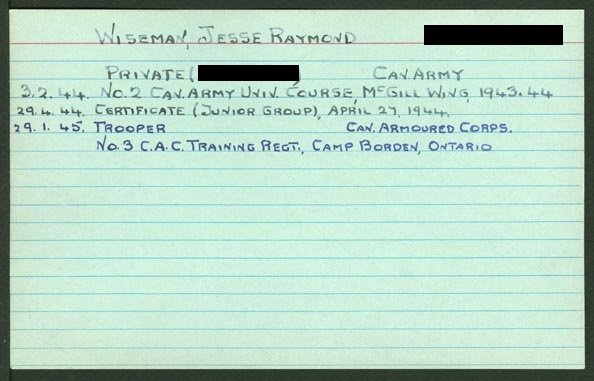 Wiseman, Jesse Raymond
Private ( ) Can. Army
3.2.44. No. 2 Can. Army Univ. Course, McGill Wing, 1943.44
29.4.44. Certificate (Junior Group), April 27, 1944.
29.1.45. Trooper Can. Armoured Corps.
No. 3 C.A.C. Training Regt., Camp Borden, Ontario